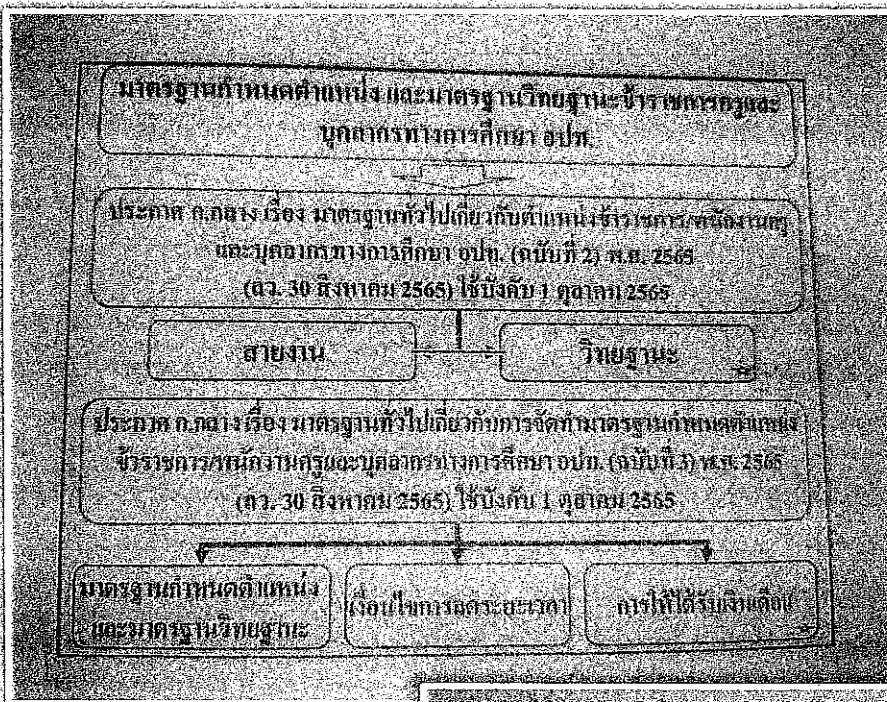 มาตรฐานกำหนดตำแหน่ง และมาตรฐานวิทยฐานะข้าราชการครูและ
บุคลากรทางการศึกษา อปท.
ประกาศ ก.กลาง เรื่อง มาตรฐานทั่วไปเกี่ยวกับตำแหน่งข้าราชการ/พนักงานครู
และบุคลากรทางการศึกษา อปท. (ฉบับที่ 2) พ.ศ. 2565
(ลว. 30 สิงหาคม 2565) ใช้บังคับ 1 ตุลาคม 2565
สายงาน
วิทยฐานะ
ประกาศ ก.กลาง เรื่อง มาตรฐานทั่วไปเกี่ยวกับการจัดทำมาตรฐานกำหนดตำแหน่ง
ข้าราชการ/พนักงานครูและบุคลากรทางการศึกษา อปท. (ฉบับที่ 3) พ.ศ. 2565
(ลว. 30 สิงหาคม 2565) ใช้บังคับ 1 ตุลาคม 2565
มาตรฐานกำหนดตำแหน่ง
และมาตรฐานวิทยฐานะ
เงื่อนไขการลดระยะเวลา
การให้ได้รับเงินเดือน